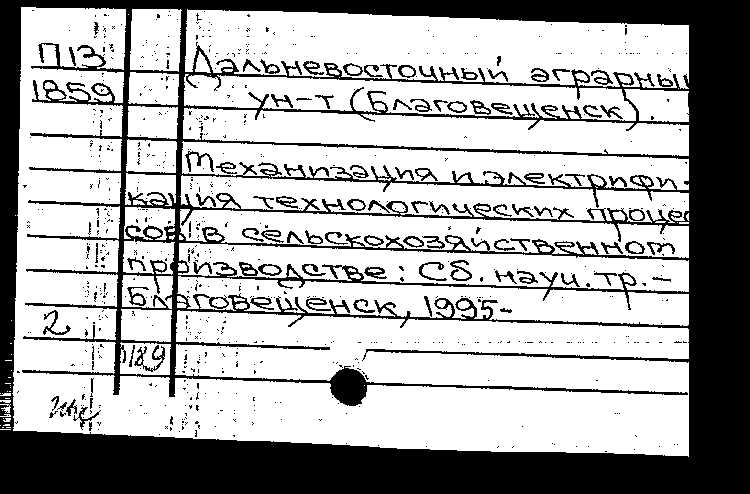 П13
1859
Дальневосточный аграрный
ун-т (Благовещенск).
Механизация и электрифи-
кация технологических процес
сов в сельскохозяйственном
производстве: Сб. науч. тр.-
Благовещенск, 1995-
2
1189